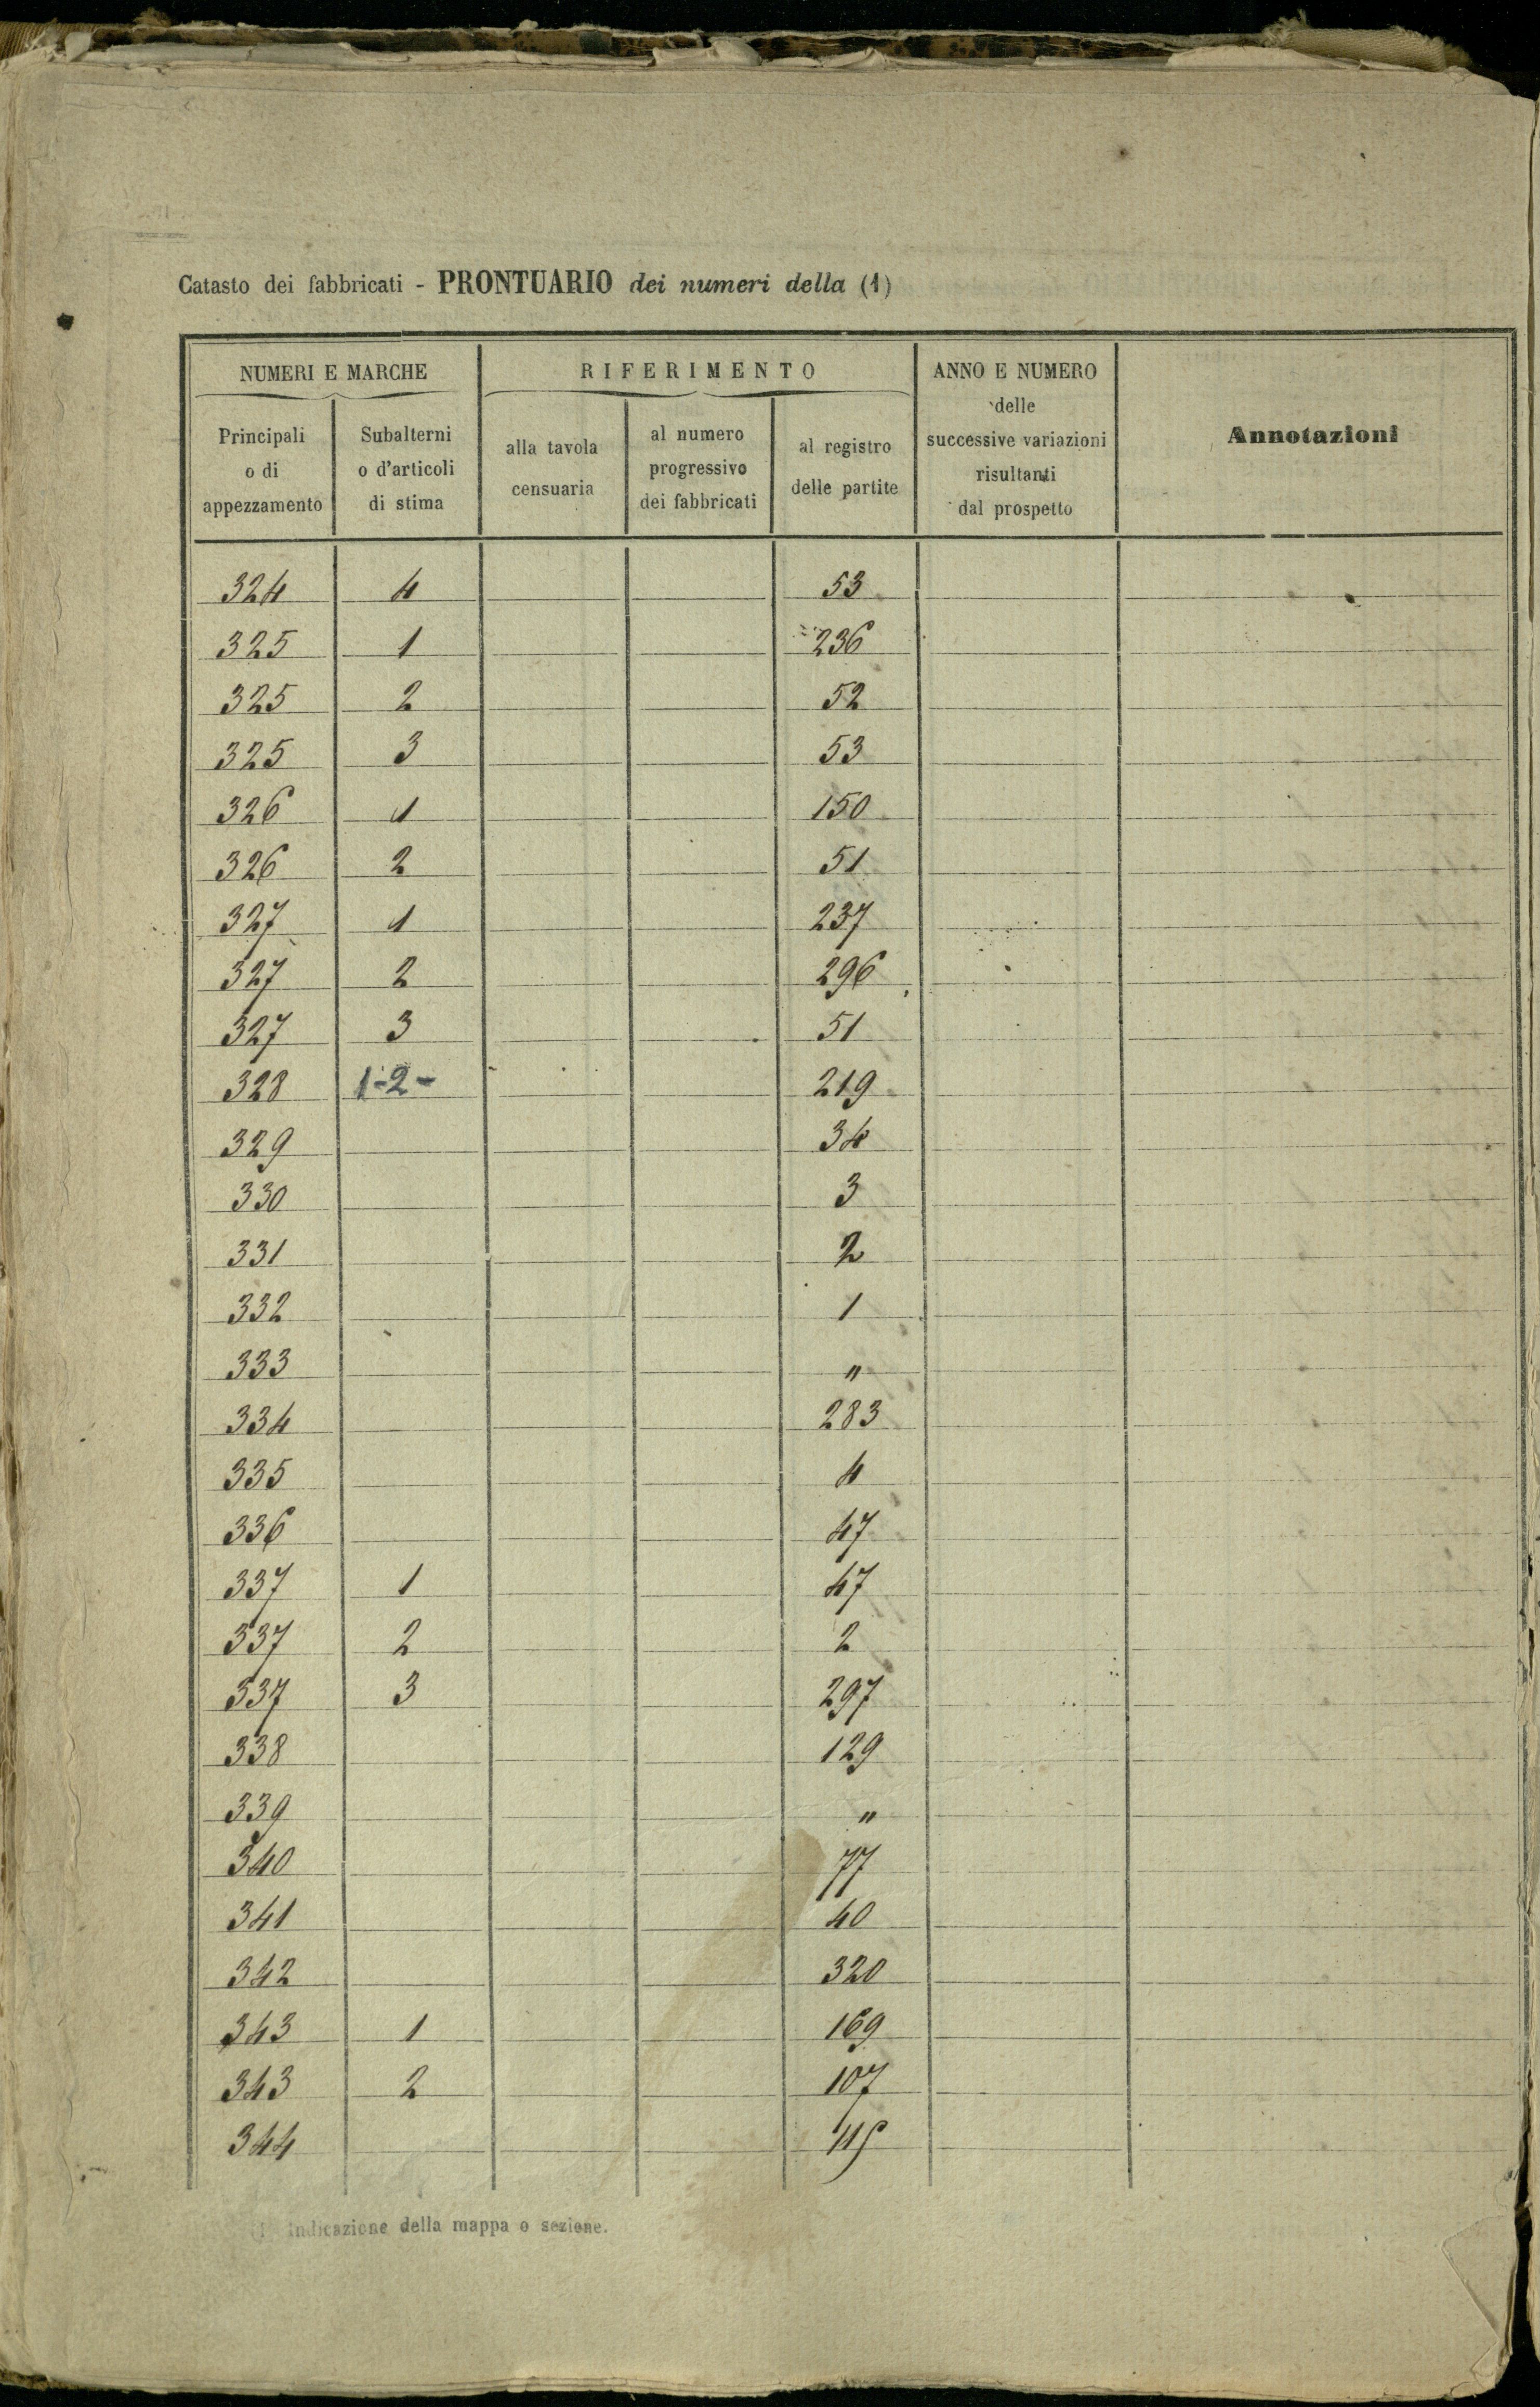 Catasto dei fabbricati - PRONTUARIO dei numeri della (1)
NUMERI E MARCHE
Principali
o di
appezzamento
Subalterni
o d'articoli
di stima
RIFERIMENTO
alla tavola
censuaria
al numero
progressivo
dei fabbricati
al registro
delle partite
ANNO E NUMERO
delle
successive variazioni
risultanti
dal prospetto
Annotazioni
324 4 53
325 1 236
325 2 52
325 3 53
326 1 150
326 2 51
327 1 237
327 2 296
327 3 51
328 1-2- 219
329 34
330 3
331 2
332 1
333 "
334 283
335 4
336 47
337 1 47
337 2 2
337 3 297
338 129
339 "
340 77
341 40
342 320
343 1 169
343 2 107
344
(1) Indicazione della mappa o sezione.